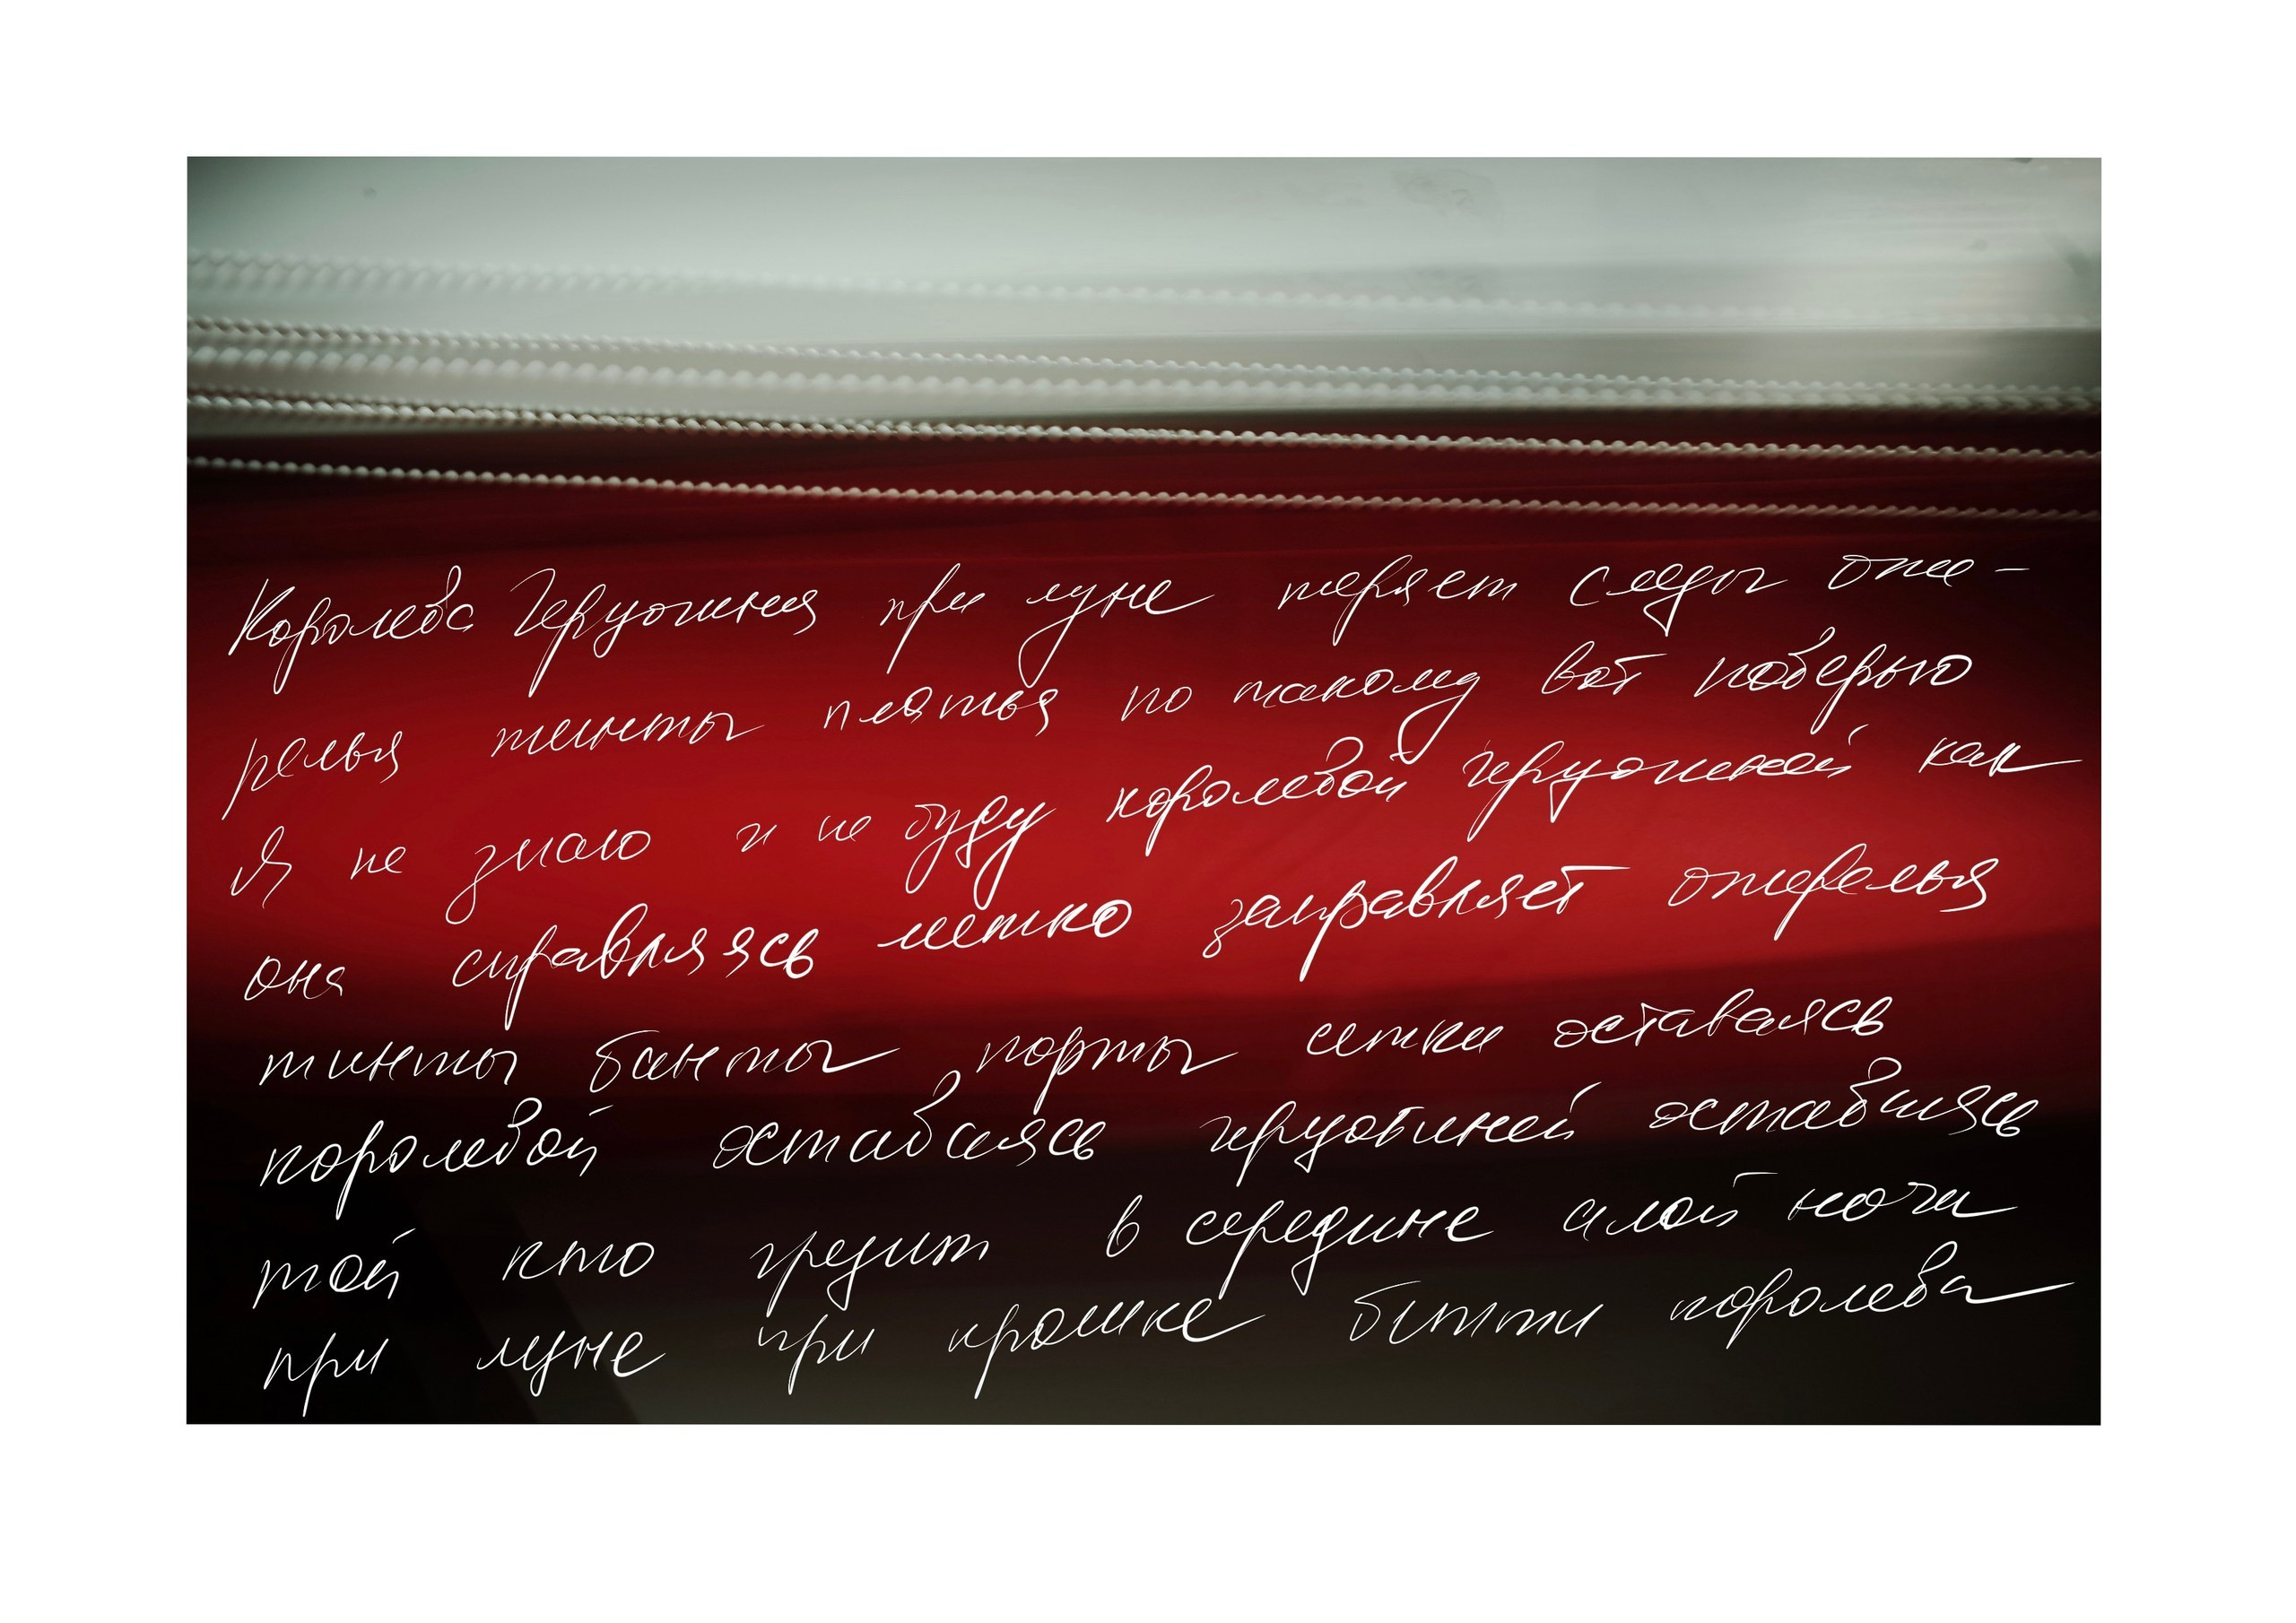 Королева Герцогиня при луне теряет следы оже-
релья тинты платья по такому вот поверью
Я не знаю и не буду королевой герцогиней как
она справляясь метко заправляет ожерелья
тинты банты порты сетки оставаясь
королевой оставаясь герцогиней оставаясь
той кто грезит в середине алой ночи
при луне при крошке битти королева